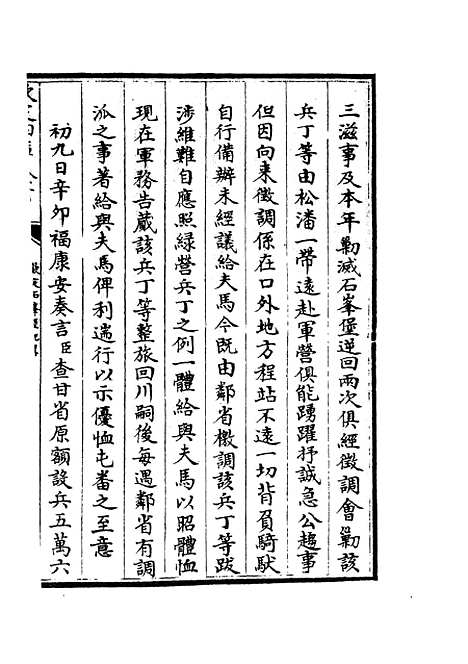 三滋事及本年勦滅石峯堡逆回兩次俱經徵調會勦該
兵丁等由松潘一帶遠赴軍營俱能踴躍抒誠急公趨事
但因向來徵調係在口外地方程站不遠一切背負騎馱
自行備辦未經議給夫馬今既由鄰省檄調該兵丁等跋
涉維難自應照緑營兵丁之例一體給與夫馬以昭體恤
現在軍務告蕆該兵丁等整旅回川嗣後每遇鄰省有調
派之事著給與夫馬俾利遄行以示優恤屯番之至意
初九日辛卯福康安奏言臣查甘省原額設兵五萬六